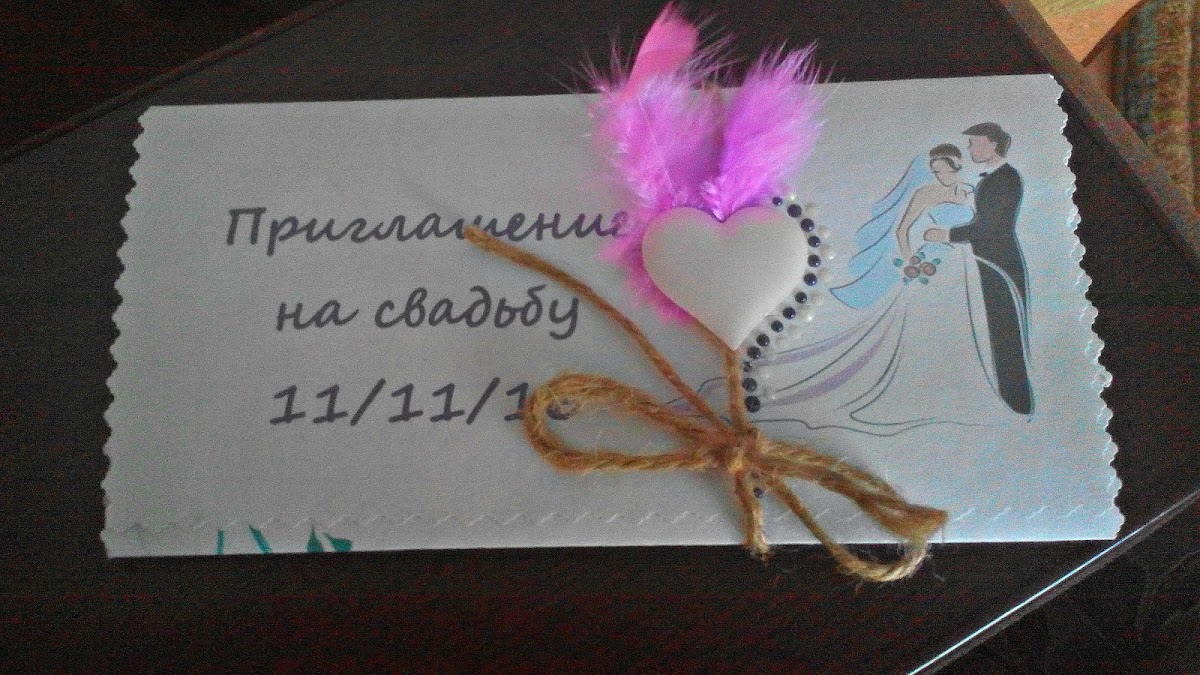 Приглашение
на свадьбу
11/11/1